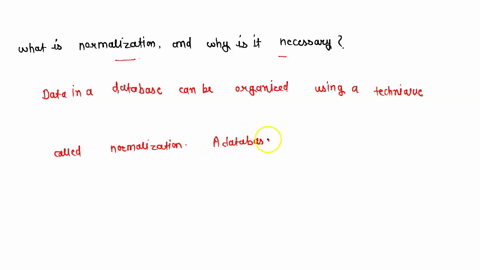 what is normalization, and why is it necessary?
Data in a database can be organized using a technique
called normalization. A databas